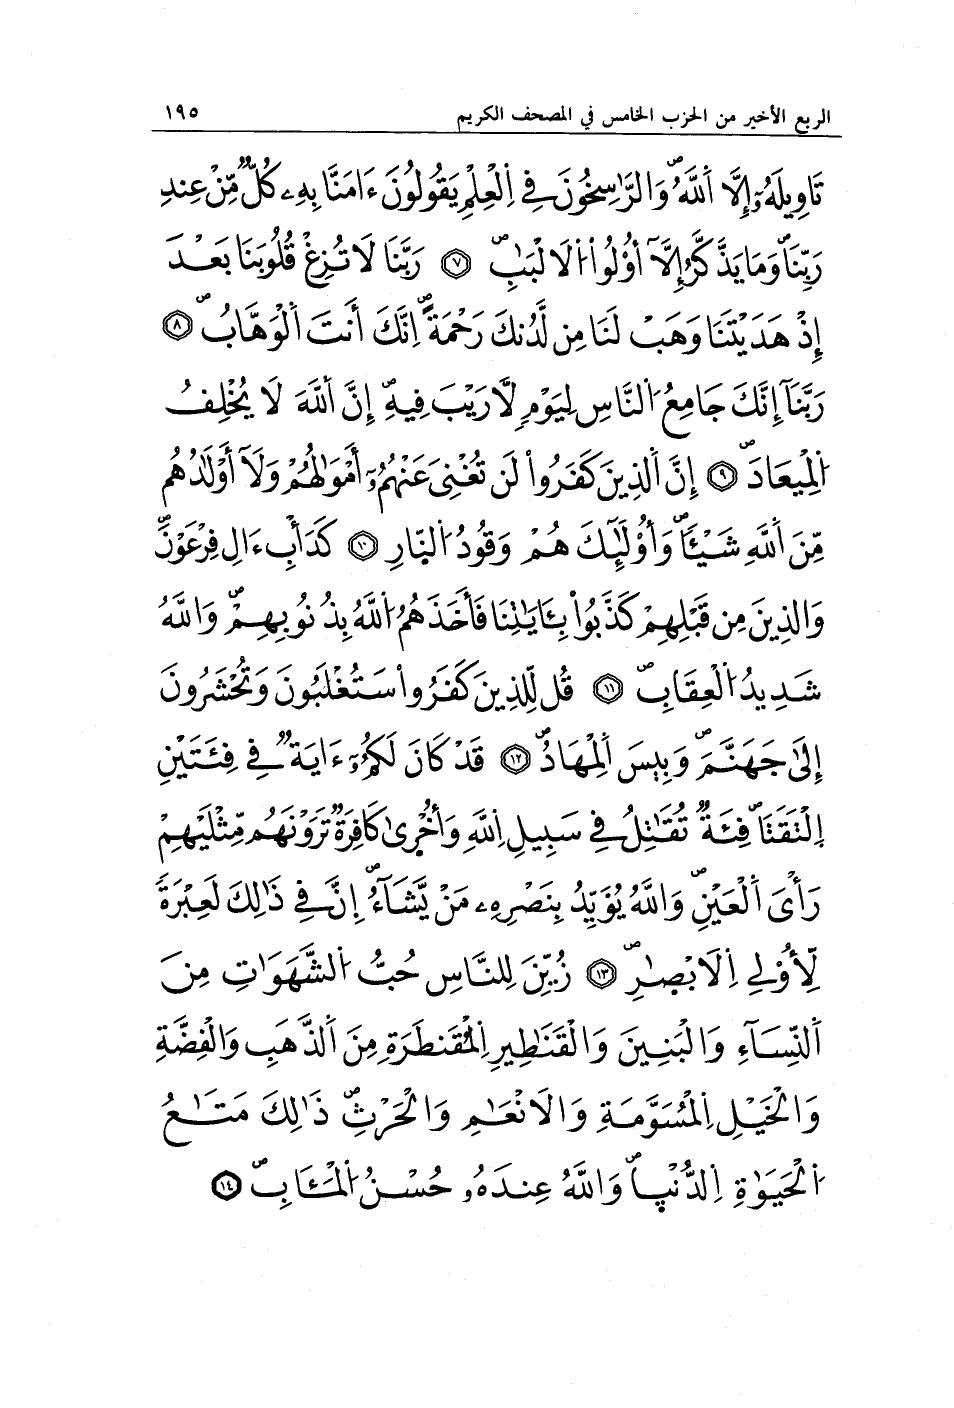 الربع الأخير من الحزب الخامس في المصحف الكريم ١٩٥
تَاوِيلَهُۥٓ إِلَّا اَ۬للَّهُۖ وَالرَّٰسِخُونَ فِے اِ۬لْعِلْمِ يَقُولُونَ ءَامَنَّا بِهِۦ كُلّٞ مِّنْ عِندِ
رَبِّنَاۖ وَمَا يَذَّكَّرُ إِلَّآ أُوْلُواْ اُ۬لَالْبَٰبِۖ ٧ رَبَّنَا لَا تُزِغْ قُلُوبَنَا بَعْدَ
إِذْ هَدَيْتَنَا وَهَبْ لَنَا مِن لَّدُنكَ رَحْمَةًۖ اِنَّكَ أَنتَ اَ۬لْوَهَّابُۖ ٨
رَبَّنَآ إِنَّكَ جَامِعُ اُ۬لنَّاسِ لِيَوْمٖ لَّا رَيْبَ فِيهِۖ إِنَّ اَ۬للَّهَ لَا يُخْلِفُ
اُ۬لْمِيعَادَۖ ٩ إِنَّ اَ۬لذِينَ كَفَرُواْ لَن تُغْنِيَ عَنْهُمُۥٓ أَمْوَٰلُهُمْ وَلَآ أَوْلَٰدُهُم
مِّنَ اَ۬للَّهِ شَيْـٔاٗۖ وَأُوْلَٰٓئِكَ هُمْ وَقُودُ اُ۬لنّ۪ارِ ١٠ كَدَأْبِ ءَالِ فِرْعَوْنَۖ
وَالذِينَ مِن قَبْلِهِمْ كَذَّبُواْ بِـَٔايَٰتِنَا فَأَخَذَهُمُ اُ۬للَّهُ بِذُنُوبِهِمْۖ وَاللَّهُ
شَدِيدُ اُ۬لْعِقَابِۖ ١١ قُل لِّلذِينَ كَفَرُواْ سَتُغْلَبُونَ وَتُحْشَرُونَ
إِلَىٰ جَهَنَّمَۖ وَبِيسَ اَ۬لْمِهَادُۖ ١٢ قَدْ كَانَ لَكُمُۥٓ ءَايَةٞ فِے فِئَتَيْنِ
اِ۪لْتَقَتَاۖ فِئَةٞ تُقَٰتِلُ فِے سَبِيلِ اِ۬للَّهِ وَأُخْر۪ىٰ كَافِرَةٞ تَرَوْنَهُم مِّثْلَيْهِمْ
رَأْيَ اَ۬لْعَيْنِۖ وَاللَّهُ يُؤَيِّدُ بِنَصْرِهِۦ مَنْ يَّشَآءُۖ إِنَّ فِے ذَٰلِكَ لَعِبْرَةٗ
لِّأُوْلِے اِ۬لَابْصٰ۪رِۖ ١٣ زُيِّنَ لِلنَّاسِ حُبُّ اُ۬لشَّهَوَٰتِ مِنَ
اَ۬لنِّسَآءِ وَالْبَنِينَ وَالْقَنَٰطِيرِ اِ۬لْمُقَنطَرَةِ مِنَ اَ۬لذَّهَبِ وَالْفِضَّةِ
وَالْخَيْلِ اِ۬لْمُسَوَّمَةِ وَالَانْعَٰمِ وَالْحَرْثِۖ ذَٰلِكَ مَتَٰعُ
اُ۬لْحَيَوٰةِ اِ۬لدُّنْي۪اۖ وَاللَّهُ عِندَهُۥ حُسْنُ اُ۬لْمَـَٔابِۖ ١٤